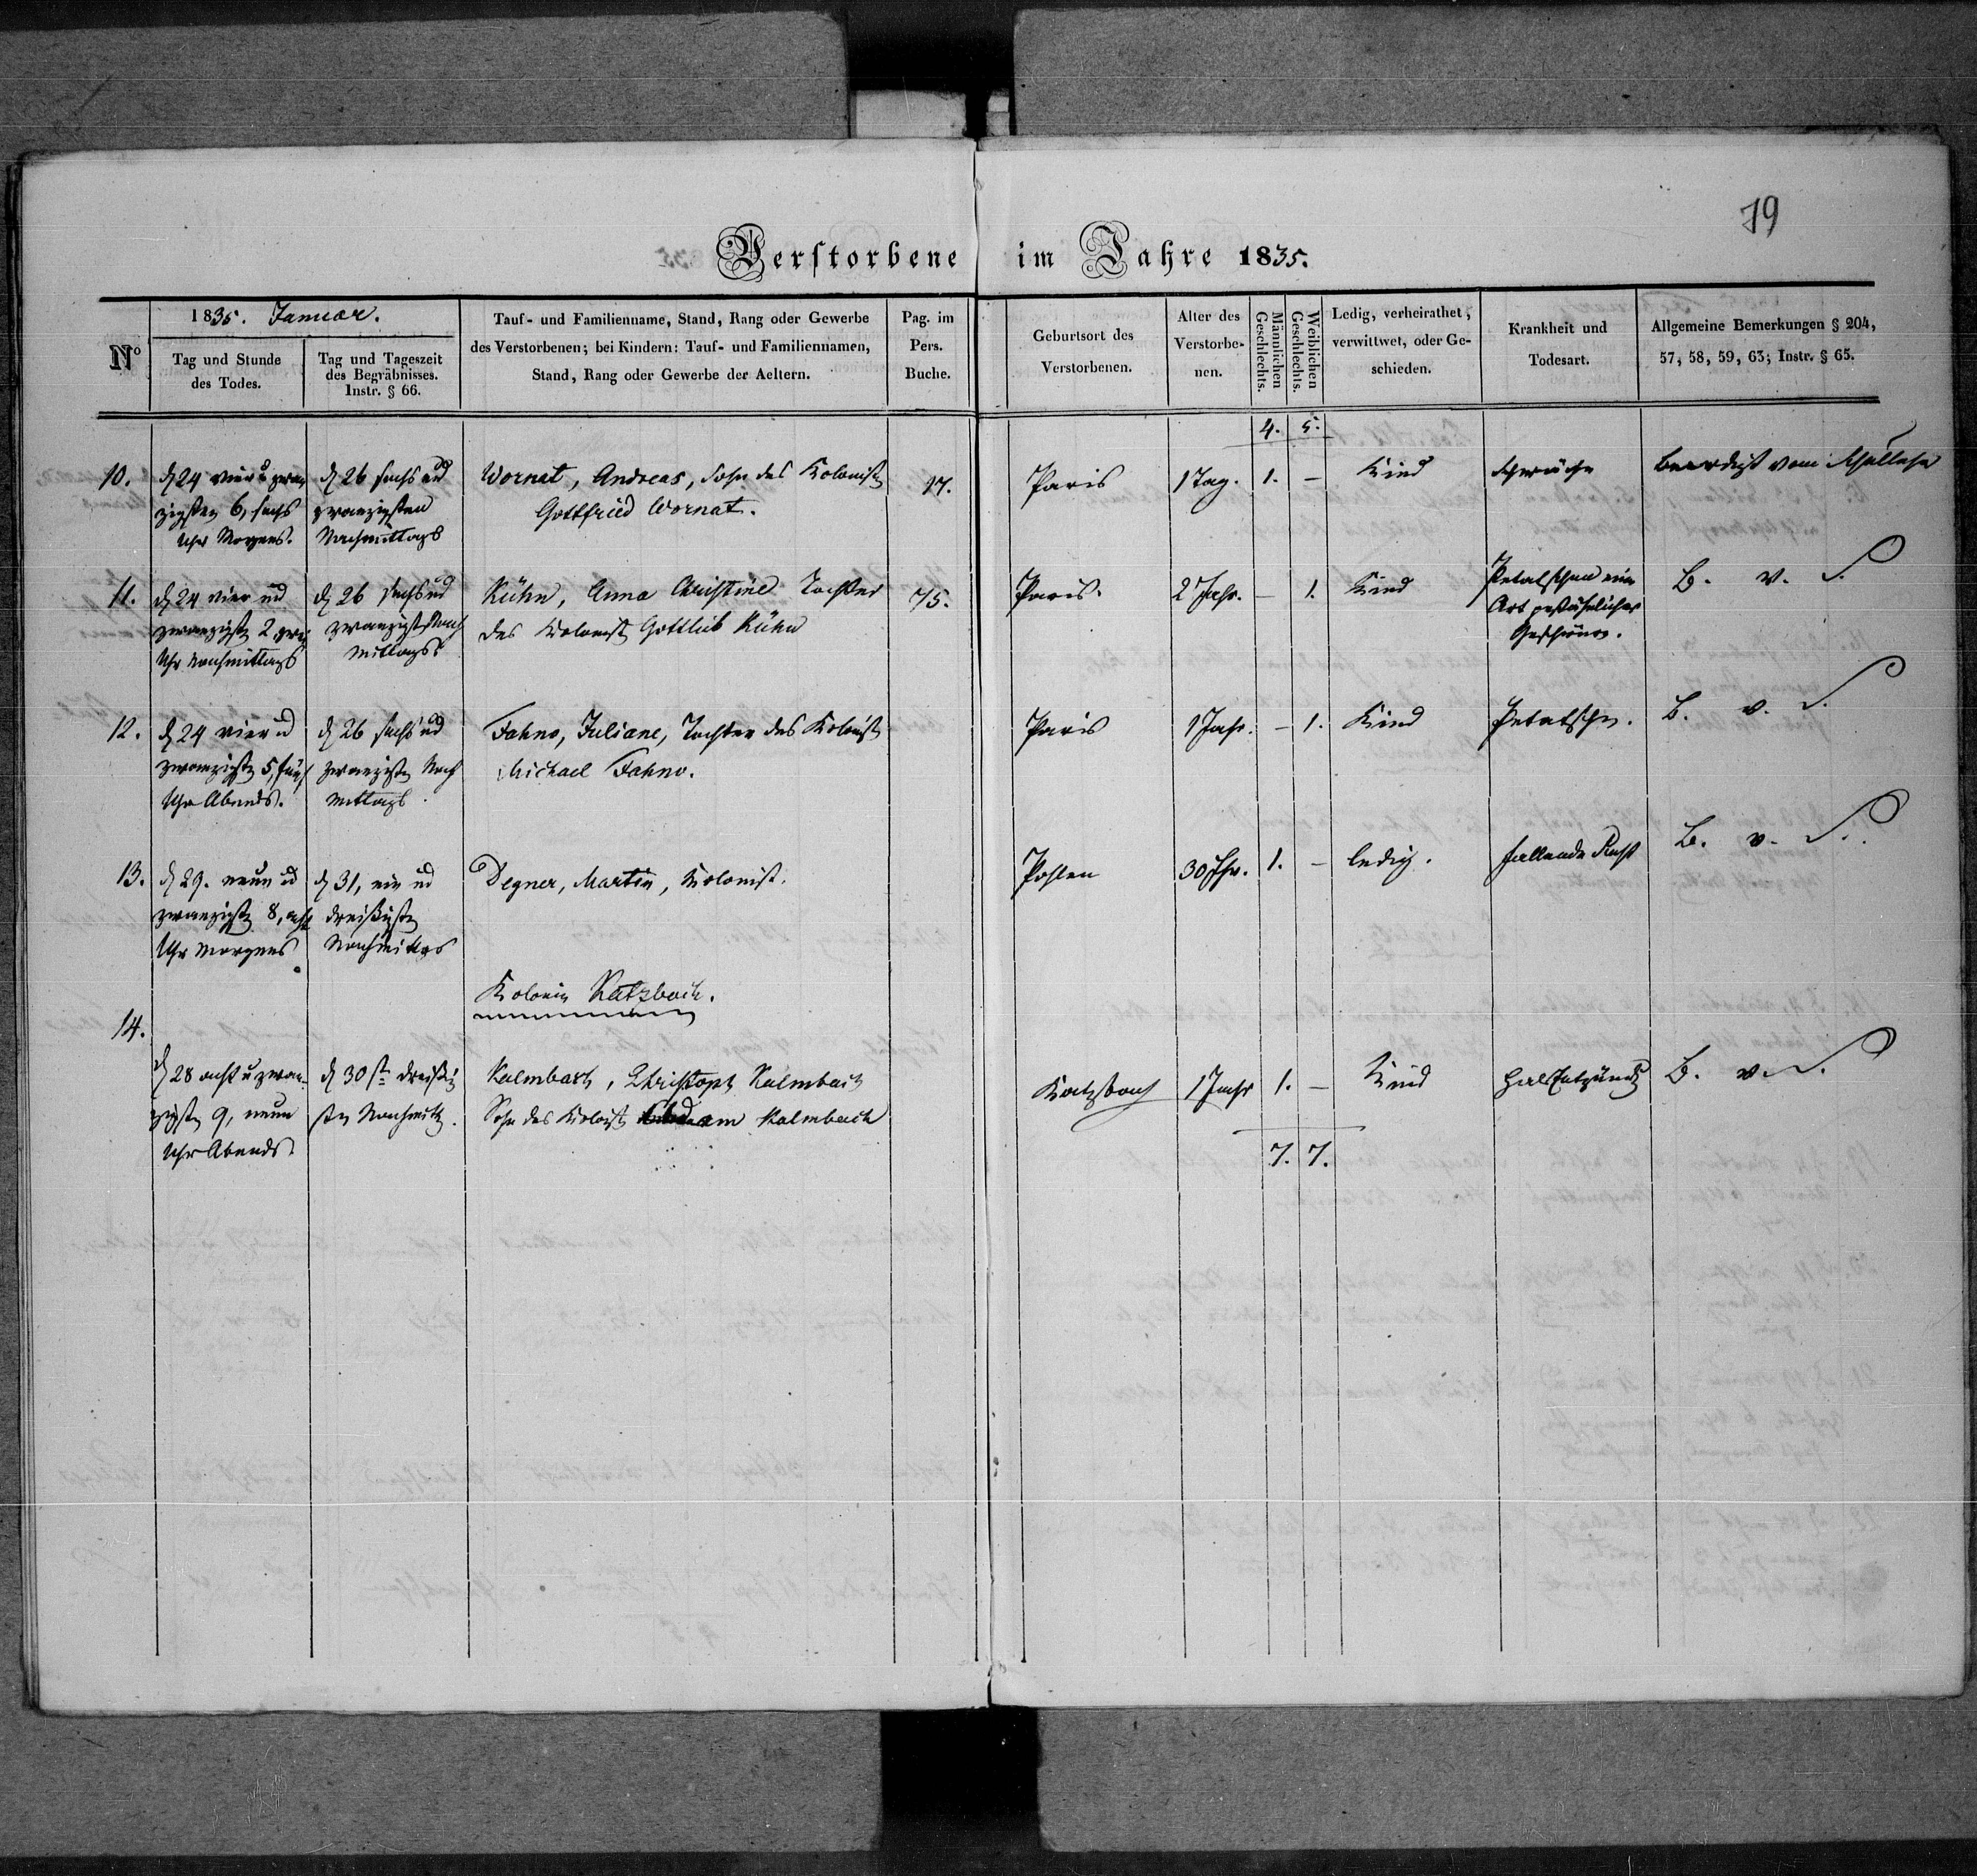 79
Verstorbene im Jahre 1835.
No
1835. Januar.
Tag und Stunde
des Todes.
Tag und Tageszeit
des Begräbnisses.
Instr. § 66.
Tauf- und Familienname, Stand, Rang oder Gewerbe
des Verstorbenen; bei Kindern: Tauf- und Familiennamen,
Stand, Rang oder Gewerbe der Aeltern.
Pag. im
Pers.
Buche.
Geburtsort des
Verstorbenen.
Alter des
Verstorbe-
nen.
Männlichen
Geschlechts.
Weiblichen
Geschlechts.
Ledig, verheirathet,
verwittwet, oder Ge-
schieden.
Krankheit und
Todesart.
Allgemeine Bemerkungen § 204,
57, 58, 59, 63; Instr. § 65.
4. 5.
10.
d 24 vier u zwan
zigsten 6, sechs
Uhr Morgens.
d 26 sechs und
zwanzigsten
Nachmittags
Wornat, Andreas, Sohn des Kolonist
Gottfried Wornat.
17.
Paris
1 Tag.
1.
–
Kind
beerdigt vom Schullehr
11.
d 24 vier und
zwanzigst 2 zwei
Uhr Nachmittags
d 26 sechs und
zwanzigst Nach
mittags
Kühn, Anna Christine Tochter
des Kolonist Gottlieb Kühn
75.
Paris.
2 Jahr.
–
1.
Kind
Petatschen eine
Art gefährlicher
Geschwüre.
B. v. S.
12.
d 24 vier ud
zwanzigst 5, fünf
Uhr Abends.
d 26 sechs und
zwanzigst Nach
mittags.
Fahno, Juliane, Tochter des Kolonist
Michael Fahno.
Paris
1 Jahr.
–
1.
Kind
Petatschn.
B. v. S.
13.
d 29. neun ud
zwanzigst 8, acht
Uhr Morgens
d 31, ein ud
dreißigst
Nachmittags
Degner, Martin, Kolonist.
Pohlen
30 Jhr.
1.
–
ledig.
B. v. S.
Kolonie Katzbach.
14.
d 28 acht u zwan-
zigst 9, neun
Uhr Abends
d 30st dreißig
sten Nachmitt.
Kalmbach, Christoph Kalmbach
Sohn des Kolonist Adam Kalmbach
Katzbach
1 Jahr
1.
–
Kind
Halsentzündg
B. v. S.
7. 7.